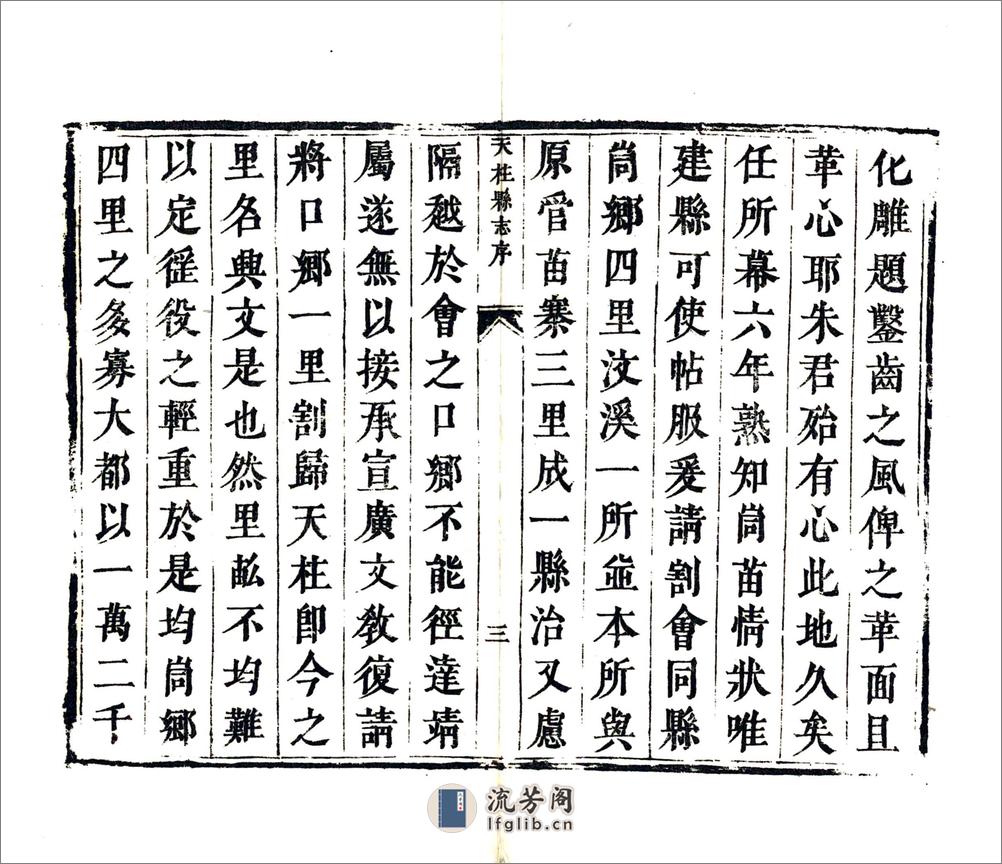 化雕題鑿齒之風俾之革面且
革心耶朱君殆有心此地久矣
任所幕六年熟知峝苗情狀唯
建縣可使帖服爰請割會同縣
峝鄉四里汶溪一所並本所與
原管苗寨三里成一縣治又慮
天柱縣志序
三
隔越於會之口鄉不能徑達靖
屬遂無以接承宣廣文教復請
將口鄉一里割歸天柱卽今之
里名興文是也然里畝不均難
以定徭役之輕重於是均峝鄉
四里之多寡大都以一萬二千
流芳阁
lfglib.cn